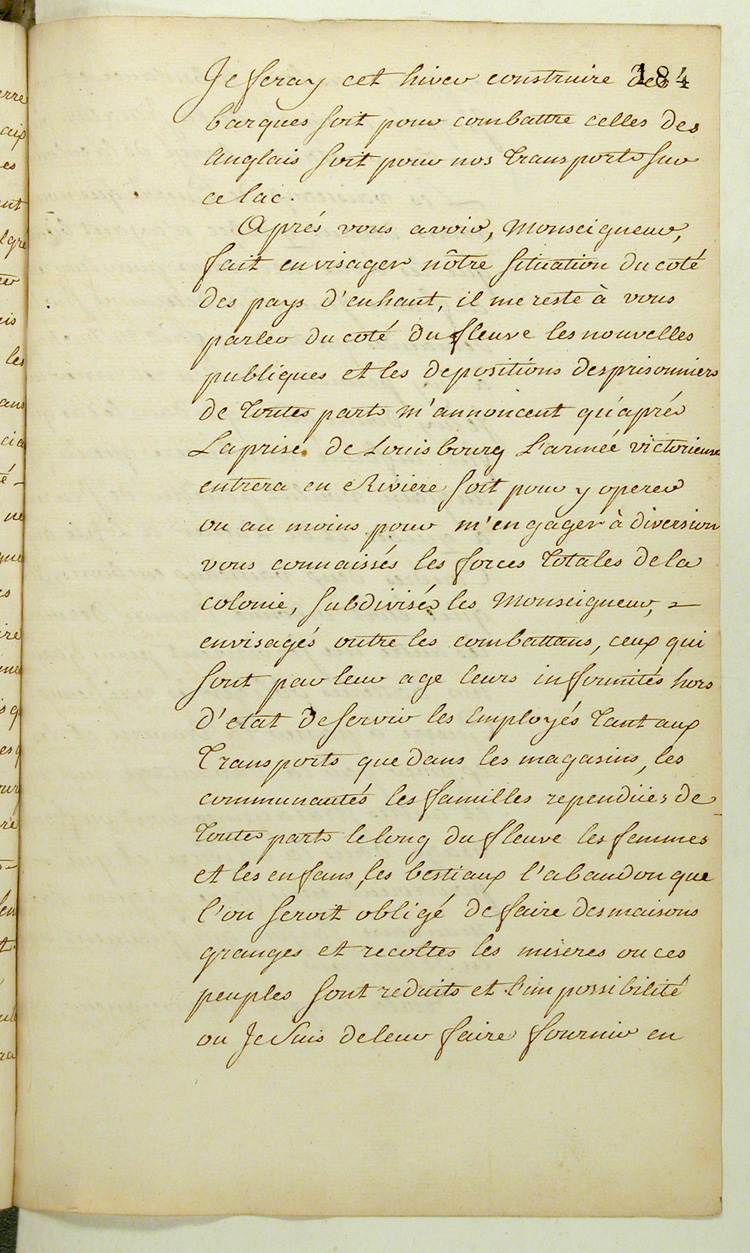 184
Je feray cet hiver construire des
barques soit pour combattre celles des
Anglais soit pour nos Transports sur
ce lac.
Aprés vous avoir, Monseigneur,
fait envisager nôtre Situation du coté
des pays d'enhaut, il me reste à vous
parler du coté du fleuve les nouvelles
publiques et les depositions des prisonniers
de Toutes parts m'annoncent qu'aprés
La prise de Louisbourg L'armée victorieuse
entrera en Riviere soit pour y operer
ou au moins pour m'engager à diversion
vous connaissés les forces Totales de la
colonie, Subdivisés les Monseigneur, =
envisagés outre les combattans, ceux qui
sont par leur age leurs infirmités hors
d'etat de servir les Employés Tant aux
Transports que dans les magasins, les
communautés les familles rependües de
Toutes parts le long du fleuve les femmes
et les enfans, les bestiaux l'abandon que
l'on seroit obligé de faire des maisons
granges et recoltes les miseres ou ces
peuples sont reduits et l'impossibilité
ou Je suis de leur faire fournir en